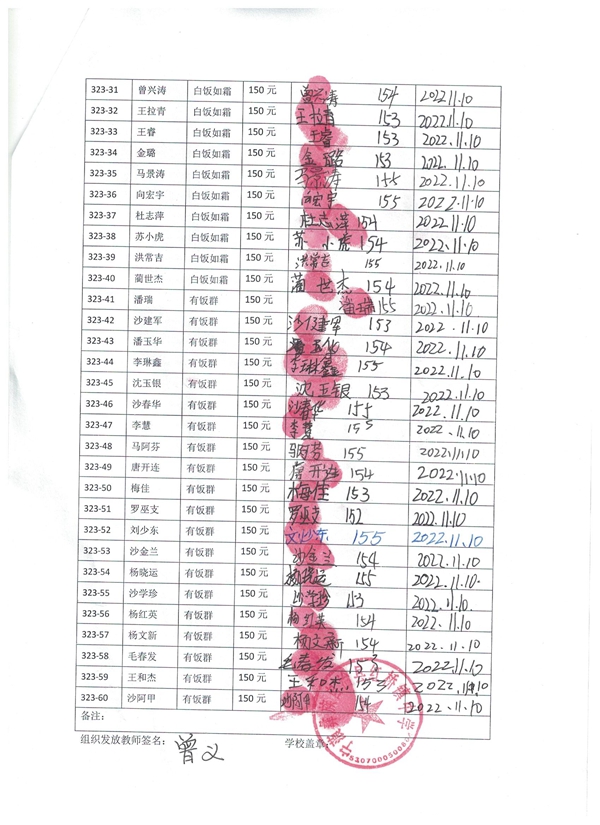 323-31 曾兴涛 白饭如霜 150 元 曾兴涛 154 2022.11.10
323-32 王拉青 白饭如霜 150 元 王拉青 153 2022.11.10
323-33 王睿 白饭如霜 150 元 王睿 153 2022.11.10
323-34 金璐 白饭如霜 150 元 金璐 153 2022.11.10
323-35 马景涛 白饭如霜 150 元 马景涛 155 2022.11.10
323-36 向宏宇 白饭如霜 150 元 向宏宇 155 2022.11.10
323-37 杜志萍 白饭如霜 150 元 杜志萍 154 2022.11.10
323-38 苏小虎 白饭如霜 150 元 苏小虎 154 2022.11.10
323-39 洪常吉 白饭如霜 150 元 洪常吉 155 2022.11.10
323-40 蔺世杰 白饭如霜 150 元 蔺世杰 154 2022.11.10
323-41 潘瑞 有饭群 150 元 潘瑞 155 2022.11.10
323-42 沙建军 有饭群 150 元 沙建军 153 2022.11.10
323-43 潘玉华 有饭群 150 元 玉华 154 2022.11.10
323-44 李琳鑫 有饭群 150 元 李琳鑫 155 2022.11.10
323-45 沈玉银 有饭群 150 元 沈玉银 153 2022.11.10
323-46 沙春华 有饭群 150 元 沙春华 155 2022.11.10
323-47 李慧 有饭群 150 元 李慧 155 2022.11.10
323-48 马阿芬 有饭群 150 元 155 2022.11.10
323-49 唐开连 有饭群 150 元 唐开连 154 2022.11.10
323-50 梅佳 有饭群 150 元 梅佳 153 2022.11.10
323-51 罗巫支 有饭群 150 元 罗巫支 152 2022.11.10
323-52 刘少东 有饭群 150 元 刘少东 155 2022.11.10
323-53 沙金兰 有饭群 150 元 沙金兰 154 2022.11.10
323-54 杨晓运 有饭群 150 元 杨晓运 155 2022.11.10.
323-55 沙学珍 有饭群 150 元 沙学珍 153 2022.11.10
323-56 杨红英 有饭群 150 元 杨红英 154 2022.11.10
323-57 杨文新 有饭群 150 元 杨文新 154 2022.11.10
323-58 毛春发 有饭群 150 元 毛春发 153 2022.11.10
323-59 王和杰 有饭群 150 元 王和杰 153 2022.11.10
323-60 沙阿甲 有饭群 150 元 沙阿甲 154 2022.11.10
备注：
组织发放教师签名： 曾义 学校盖章：